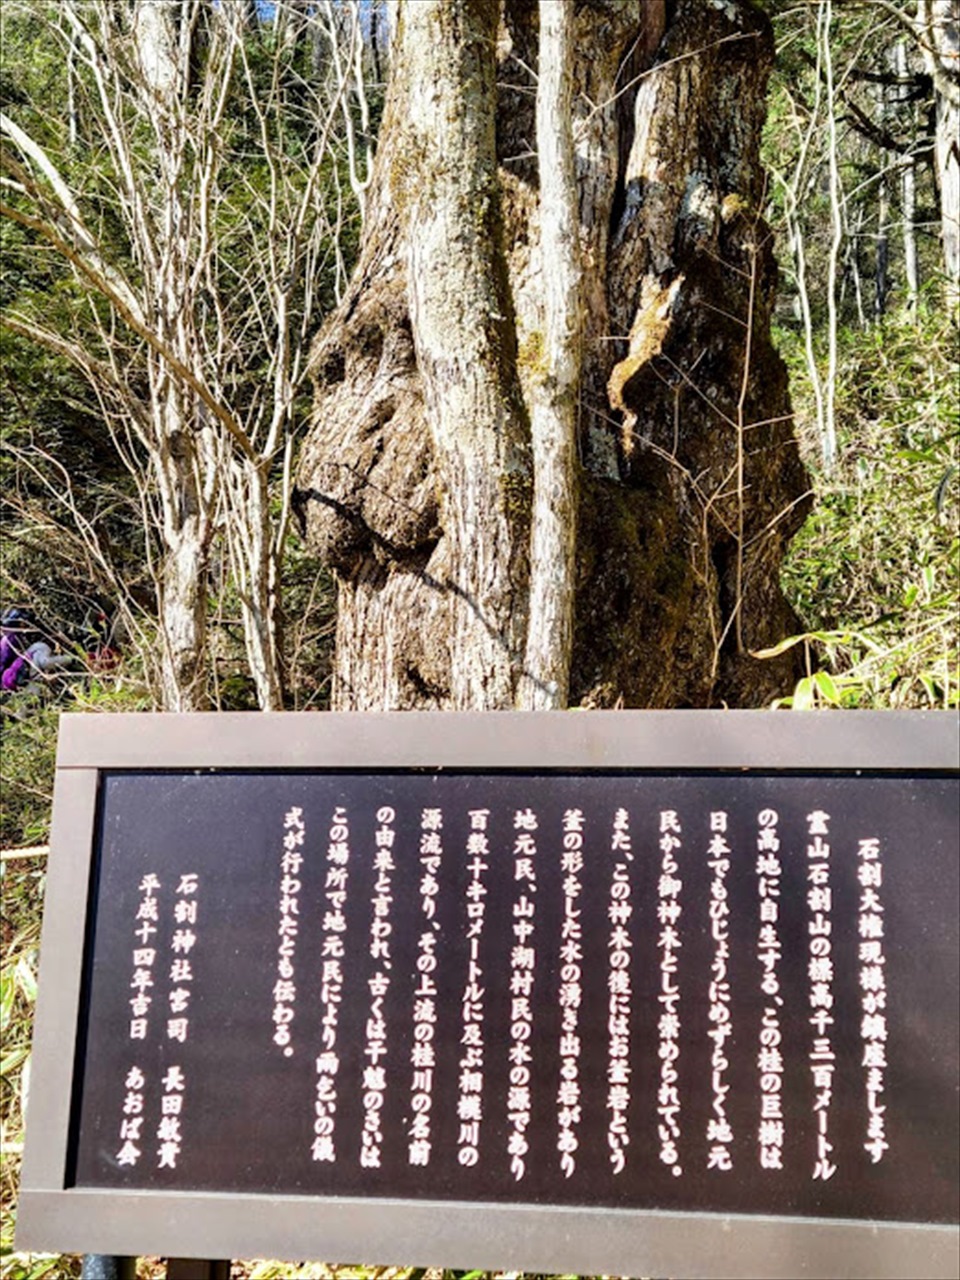 石割大権現様が鎮座まします
霊山石割山の標高千三百メートル
の高地に自生する、この桂の巨樹は
日本でもひじょうにめずらしく地元
民から御神木として崇められている。
また、この神木の後にはお釜岩という
釜の形をした水の湧き出る岩があり
地元民、山中湖村民の水の源であり
百数十キロメートルに及ぶ相模川の
源流であり、その上流の桂川の名前
の由来と言われ、古くは干魃のさいは
この場所で地元民により雨乞いの儀
式が行われたとも伝わる。
石割神社宮司 長田敏貴
平成十四年吉日 あおば会